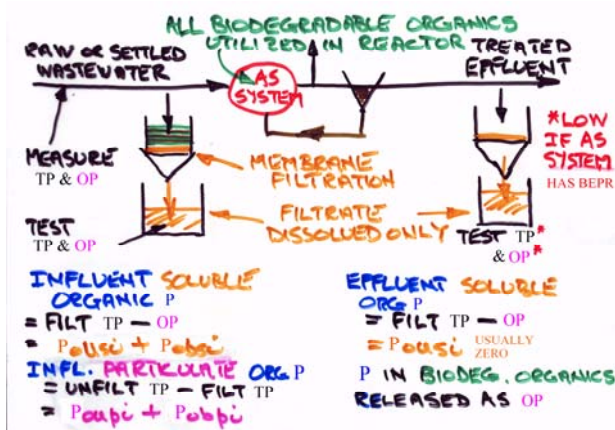 ALL BIODEGRADABLE ORGANICS
UTILIZED IN REACTOR
RAW OR SETTLED
WASTEWATER
AS
SYSTEM
TREATED
EFFLUENT
MEASURE
TP & OP
MEMBRANE
FILTRATION
*LOW
IF AS
SYSTEM
HAS BEPR
TEST
TP & OP
FILTRATE
DISSOLVED ONLY
TEST TP*
& OP*
INFLUENT SOLUBLE
ORGANIC P
= FILT TP - OP
= Pousi + Pobsi
INFL. PARTICULATE ORG P
= UNFILT TP - FILT TP
= Poupi + Pobpi
EFFLUENT SOLUBLE
ORG P
= FILT TP - OP
= Pousi USUALLY
ZERO
P IN BIODEG. ORGANICS
RELEASED AS OP